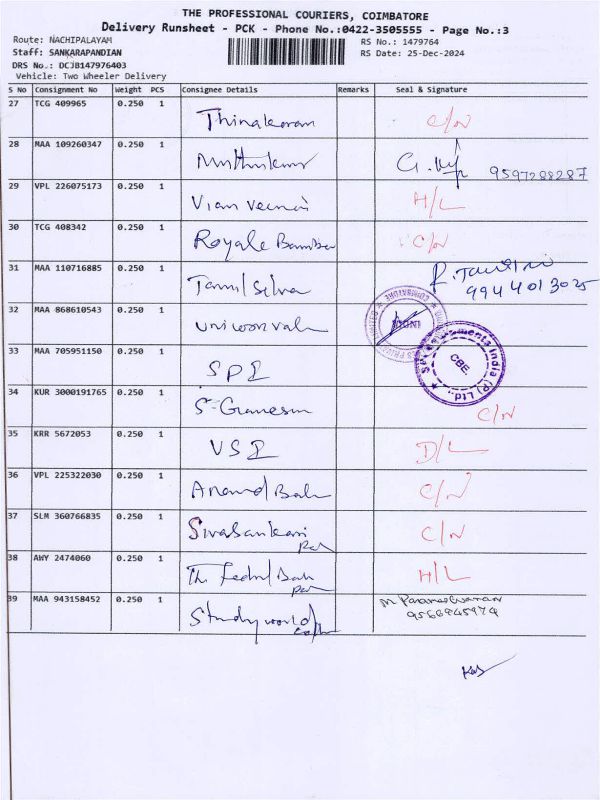 THE PROFESSIONAL COURIERS, COIMBATORE
Delivery Runsheet - PCK - Phone No.:0422-3505555 - Page No.:3
Route: NACHIPALAYAM RS No.: 1479764
Staff: SANKARAPANDIAN RS Date: 25-Dec-2024
DRS No.: DCJB147976403
Vehicle: Two Wheeler Delivery
S No Consignment No Weight PCS Consignee Details Remarks Seal & Signature
27 TCG 409965 0.250 1 Thinakaran C/N
28 MAA 109260347 0.250 1 Muthukumar 9597288287
29 VPL 226075173 0.250 1 H/L
30 TCG 408342 0.250 1 Royale C/N
31 MAA 110716885 0.250 1 Tamil Selva
9944013025
32 MAA 868610543 0.250 1
INDIA
33 MAA 705951150 0.250 1 SPI
India (P) Ltd.,
CBE.
34 KUR 3000191765 0.250 1 S-Ganesan C/N
35 KRR 5672053 0.250 1 VSI D/L
36 VPL 225322030 0.250 1 Anand Bab C/N
37 SLM 360766835 0.250 1 Sivasankari C/N
38 AWY 2474060 0.250 1 The Fedral Bank H/L
39 MAA 943158452 0.250 1 Study world M Parameswaran